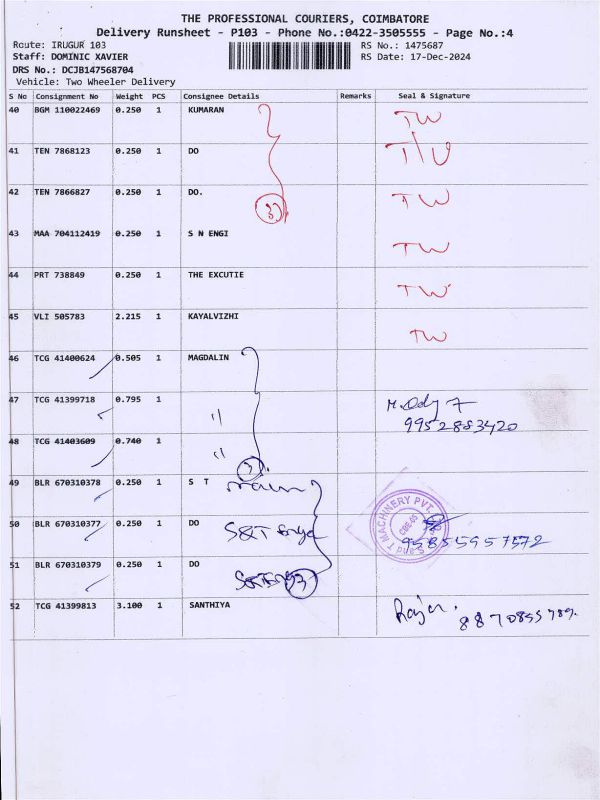 THE PROFESSIONAL COURIERS, COIMBATORE
Delivery Runsheet - P103 - Phone No.:0422-3505555 - Page No.:4
Route: IRUGUR 103
RS No.: 1475687
Staff: DOMINIC XAVIER
RS Date: 17-Dec-2024
DRS No.: DCJB147568704
Vehicle: Two Wheeler Delivery
S No Consignment No Weight PCS Consignee Details Remarks Seal & Signature
40 BGM 110022469 0.250 1 KUMARAN TW
41 TEN 7868123 0.250 1 DO TW
42 TEN 7866827 0.250 1 DO. TW
3
43 MAA 704112419 0.250 1 S N ENGI TW
44 PRT 738849 0.250 1 THE EXCUTIE TW
45 VLI 505783 2.215 1 KAYALVIZHI TW
46 TCG 41400624 0.505 1 MAGDALIN
47 TCG 41399718 0.795 1 "
9952883420
48 TCG 41403609 0.740 1 "
3
49 BLR 670310378 0.250 1 S T
MACHINERY PVT.
50 BLR 670310377 0.250 1 DO S&T
51 BLR 670310379 0.250 1 DO
3
52 TCG 41399813 3.100 1 SANTHIYA
8870855789.